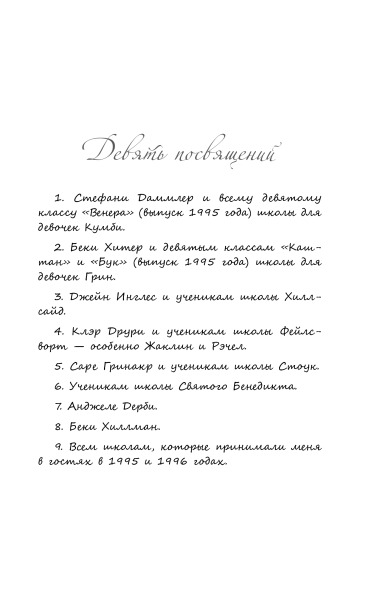 Девять посвящений
1. Стефани Даммлер и всему девятому
классу «Венера» (выпуск 1995 года) школы для
девочек Кумби.
2. Беки Хитер и девятым классам «Каш-
тан» и «Бук» (выпуск 1995 года) школы для
девочек Грин.
3. Джейн Инглес и ученикам школы Хилл-
сайд.
4. Клэр Друри и ученикам школы Фейлс-
ворт — особенно Жаклин и Рэчел.
5. Саре Гринакр и ученикам школы Стоук.
6. Ученикам школы Святого Бенедикта.
7. Анджеле Дерби.
8. Беки Хиллман.
9. Всем школам, которые принимали меня
в гостях в 1995 и 1996 годах.